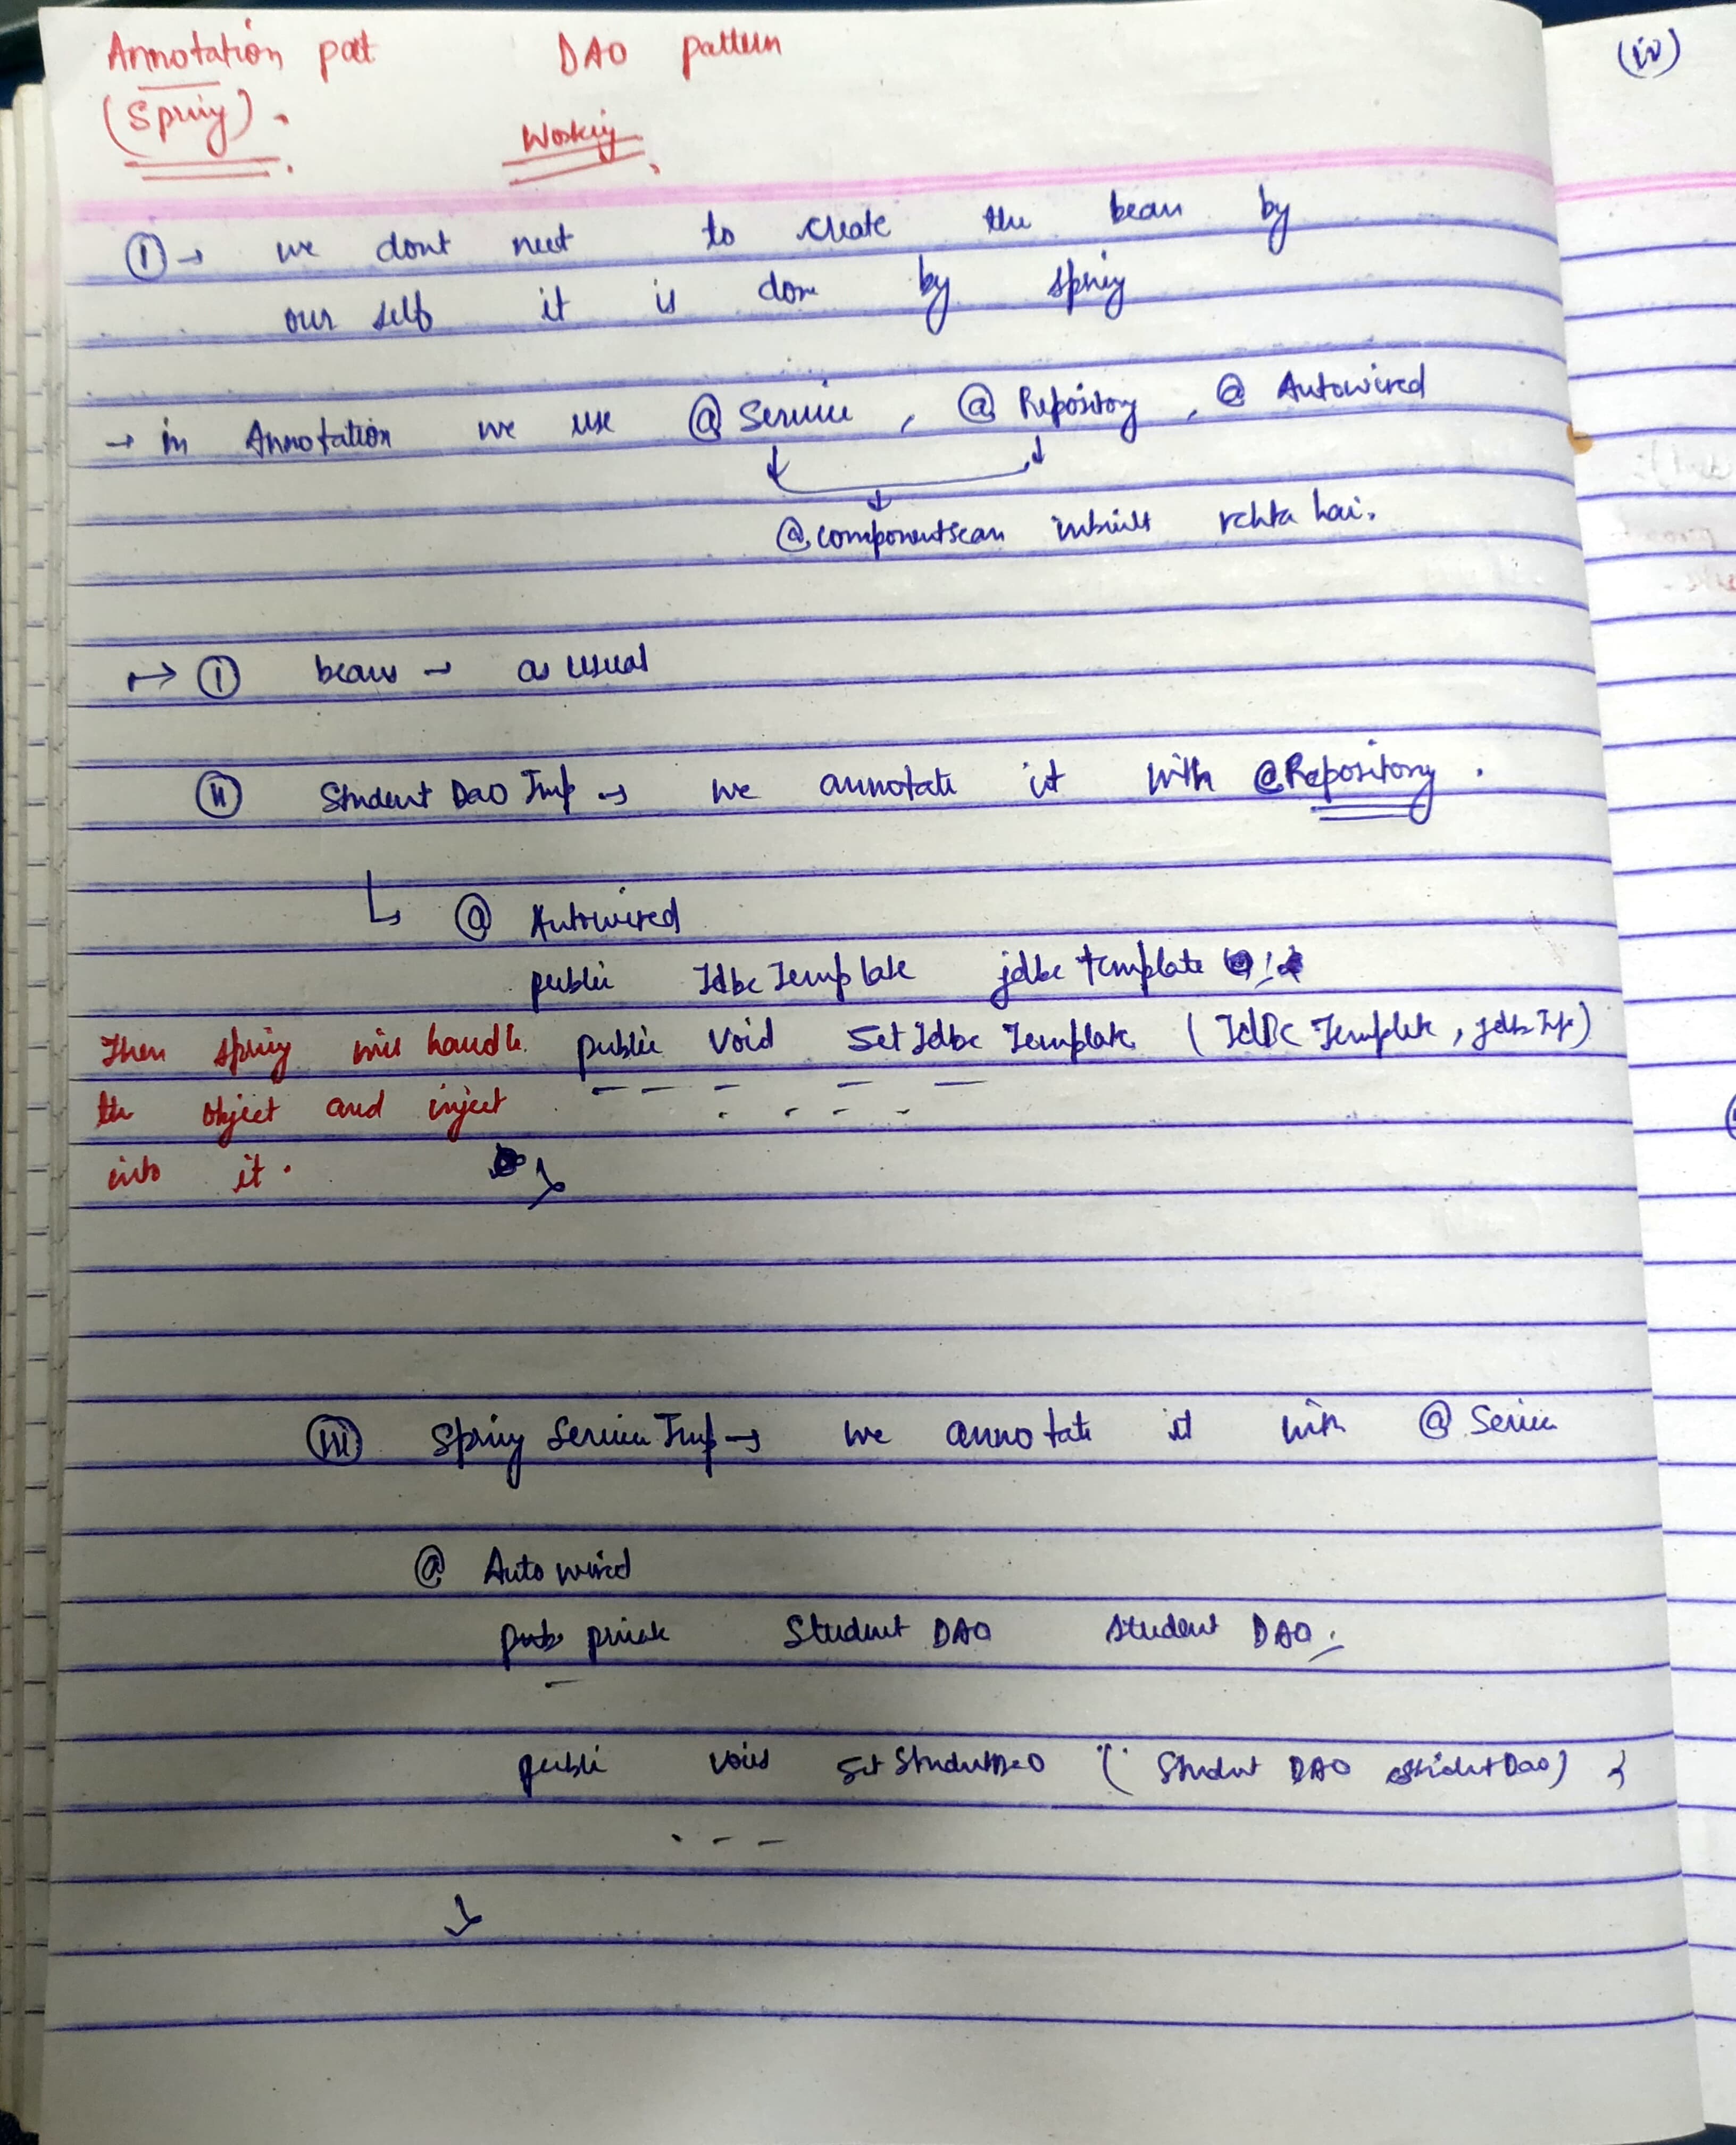 Annotation part DAO pattern
(Spring).
Working
(iv)
① → we dont neet to create the bean by
our self it is done by spring
→ in Annotation we use @ Service , @ Repository , @ Autowired
@componentscan inbuilt rehta hai.
→ ① beans → as usual
② Student Dao Imp → we annotate it with @Repository .
@ Autowired
public Jdbc Template jdbc template ;
Then spring will handle public void Set Jdbc Template ( JdBc Template , jdbcTp)
the object and inject
into it .
③ Spring Service Imp → we annotate it with @ Service
@ Auto wired
private Student DAO student DAO ;
public void set StudentDAO ( Student DAO studentDao) {